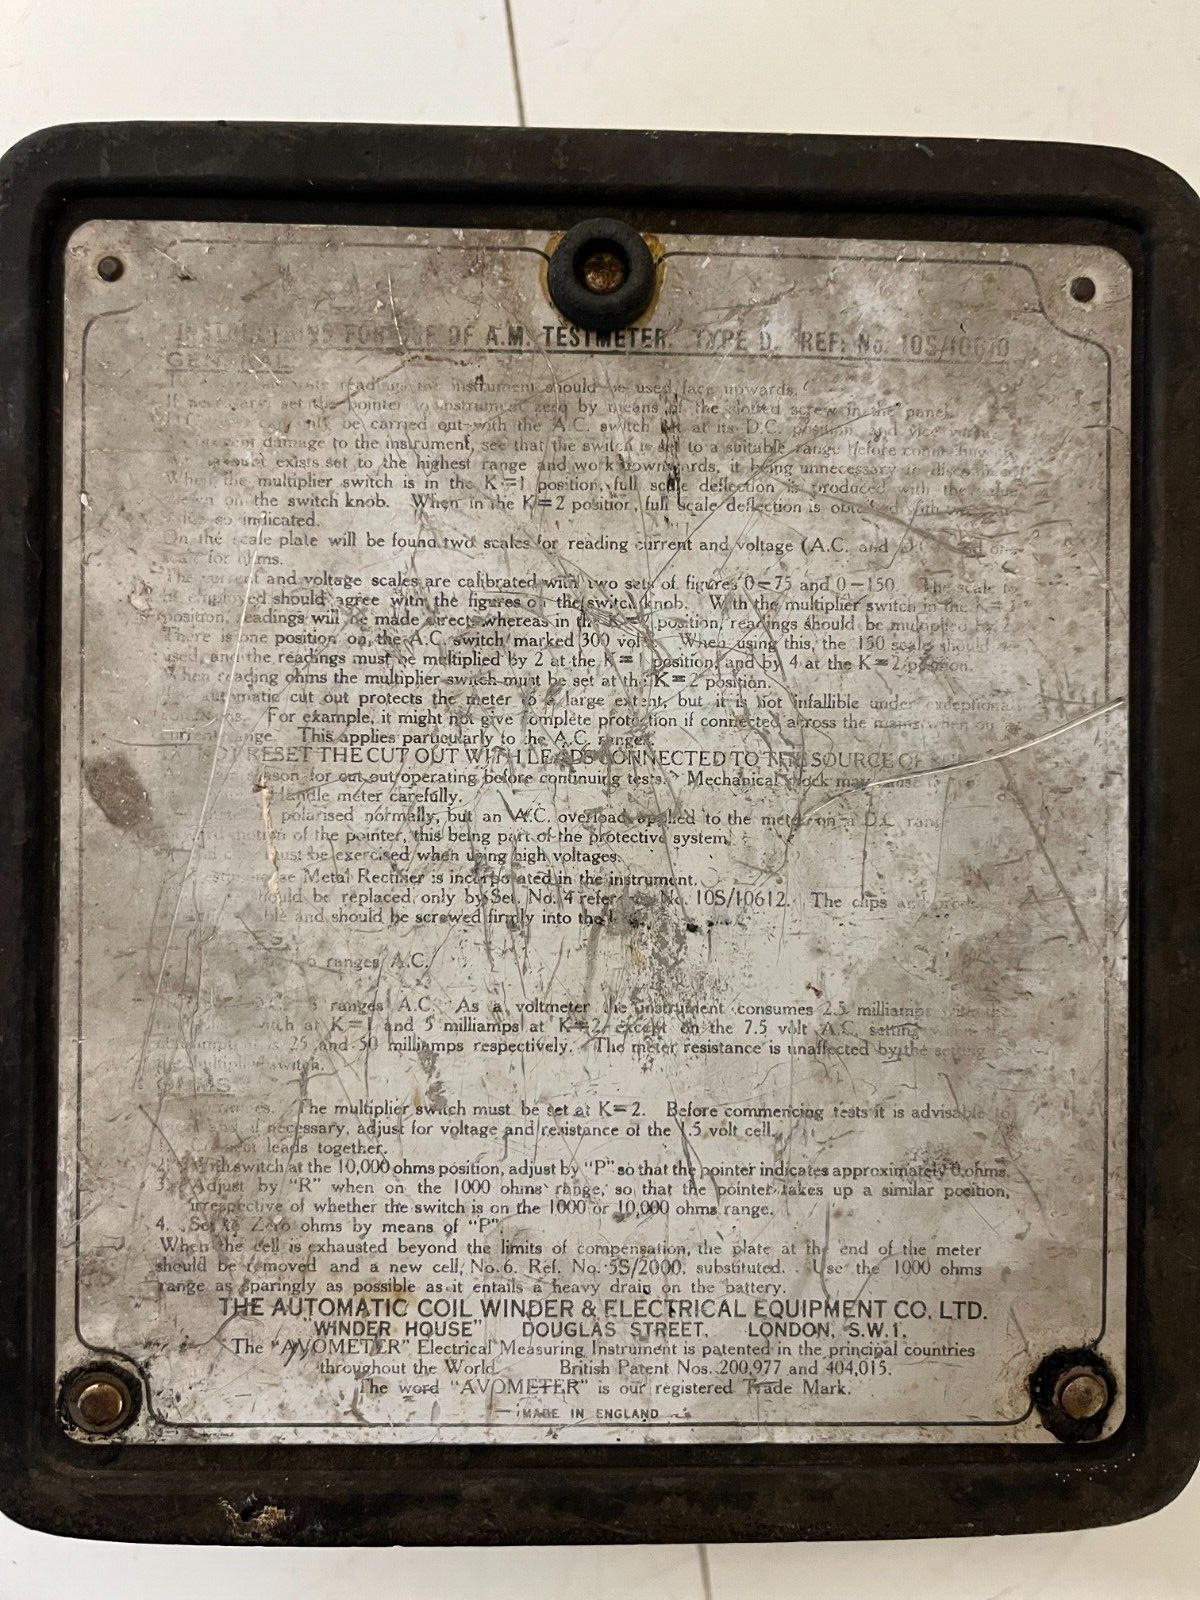 FOR USE OF A.M. TESTMETER. TYPE D. REF: No. 10S/10610
GENERAL.
readings the instrument should be used face upwards.
If necessary, set the pointer to instrument zero by means of the slotted screw in the panel.
only be carried out with the A.C. switch set at its D.C. position, and vice
damage to the instrument, see that the switch is set to a suitable range before
exists set to the highest range and work downwards, it being unnecessary to
When the multiplier switch is in the K=1 position, full scale deflection is produced with the
on the switch knob. When in the K=2 position, full scale deflection is obtained with
so indicated.
On the scale plate will be found two scales for reading current and voltage (A.C. and
scale for ohms.
The current and voltage scales are calibrated with two sets of figures 0-75 and 0-150. The scale to
be employed should agree with the figures on the switch knob. With the multiplier switch in the K=
position, readings will be made direct, whereas in the position, readings should be multiplied by
There is one position on the A.C. switch marked 300 volts. When using this, the 150 scale should
used, and the readings must be multiplied by 2 at the K=1 position, and by 4 at the K=2 position.
When reading ohms the multiplier switch must be set at the K=2 position.
automatic cut out protects the meter to a large extent, but it is not infallible under exceptional
For example, it might not give complete protection if connected across the mains when on
current range. This applies particularly to the A.C. ranges.
RESET THE CUT OUT WITH LEADS CONNECTED TO THE SOURCE OF
reason for cut out operating before continuing tests. Mechanical shock may cause
Handle meter carefully.
polarised normally, but an A.C. overload applied to the meter on a D.C. range
of the pointer, this being part of the protective system.
must be exercised when using high voltages.
Metal Rectifier is incorporated in the instrument.
should be replaced only by Set. No. 4 refer No. 10S/10612. The clips and
and should be screwed firmly into the
ranges A.C.
ranges A.C. As a voltmeter the instrument consumes 2.5 milliamps with the
switch at K=1 and 5 milliamps at K=2, except on the 7.5 volt A.C. setting
25 and 50 milliamps respectively. The meter resistance is unaffected by the setting
multiplier switch.
OHMS
The multiplier switch must be set at K=2. Before commencing tests it is advisable to
and if necessary, adjust for voltage and resistance of the 1.5 volt cell.
leads together.
2. With switch at the 10,000 ohms position, adjust by "P" so that the pointer indicates approximately 0 ohms.
3. Adjust by "R" when on the 1000 ohms range, so that the pointer takes up a similar position,
irrespective of whether the switch is on the 1000 or 10,000 ohms range.
4. Set to Zero ohms by means of "P".
When the cell is exhausted beyond the limits of compensation, the plate at the end of the meter
should be removed and a new cell, No. 6. Ref. No. 5S/2000. substituted. Use the 1000 ohms
range as sparingly as possible as it entails a heavy drain on the battery.
THE AUTOMATIC COIL WINDER & ELECTRICAL EQUIPMENT CO. LTD.
"WINDER HOUSE" DOUGLAS STREET, LONDON, S.W.1.
The "AVOMETER" Electrical Measuring Instrument is patented in the principal countries
throughout the World. British Patent Nos. 200,977 and 404,015.
The word "AVOMETER" is our registered Trade Mark.
MADE IN ENGLAND